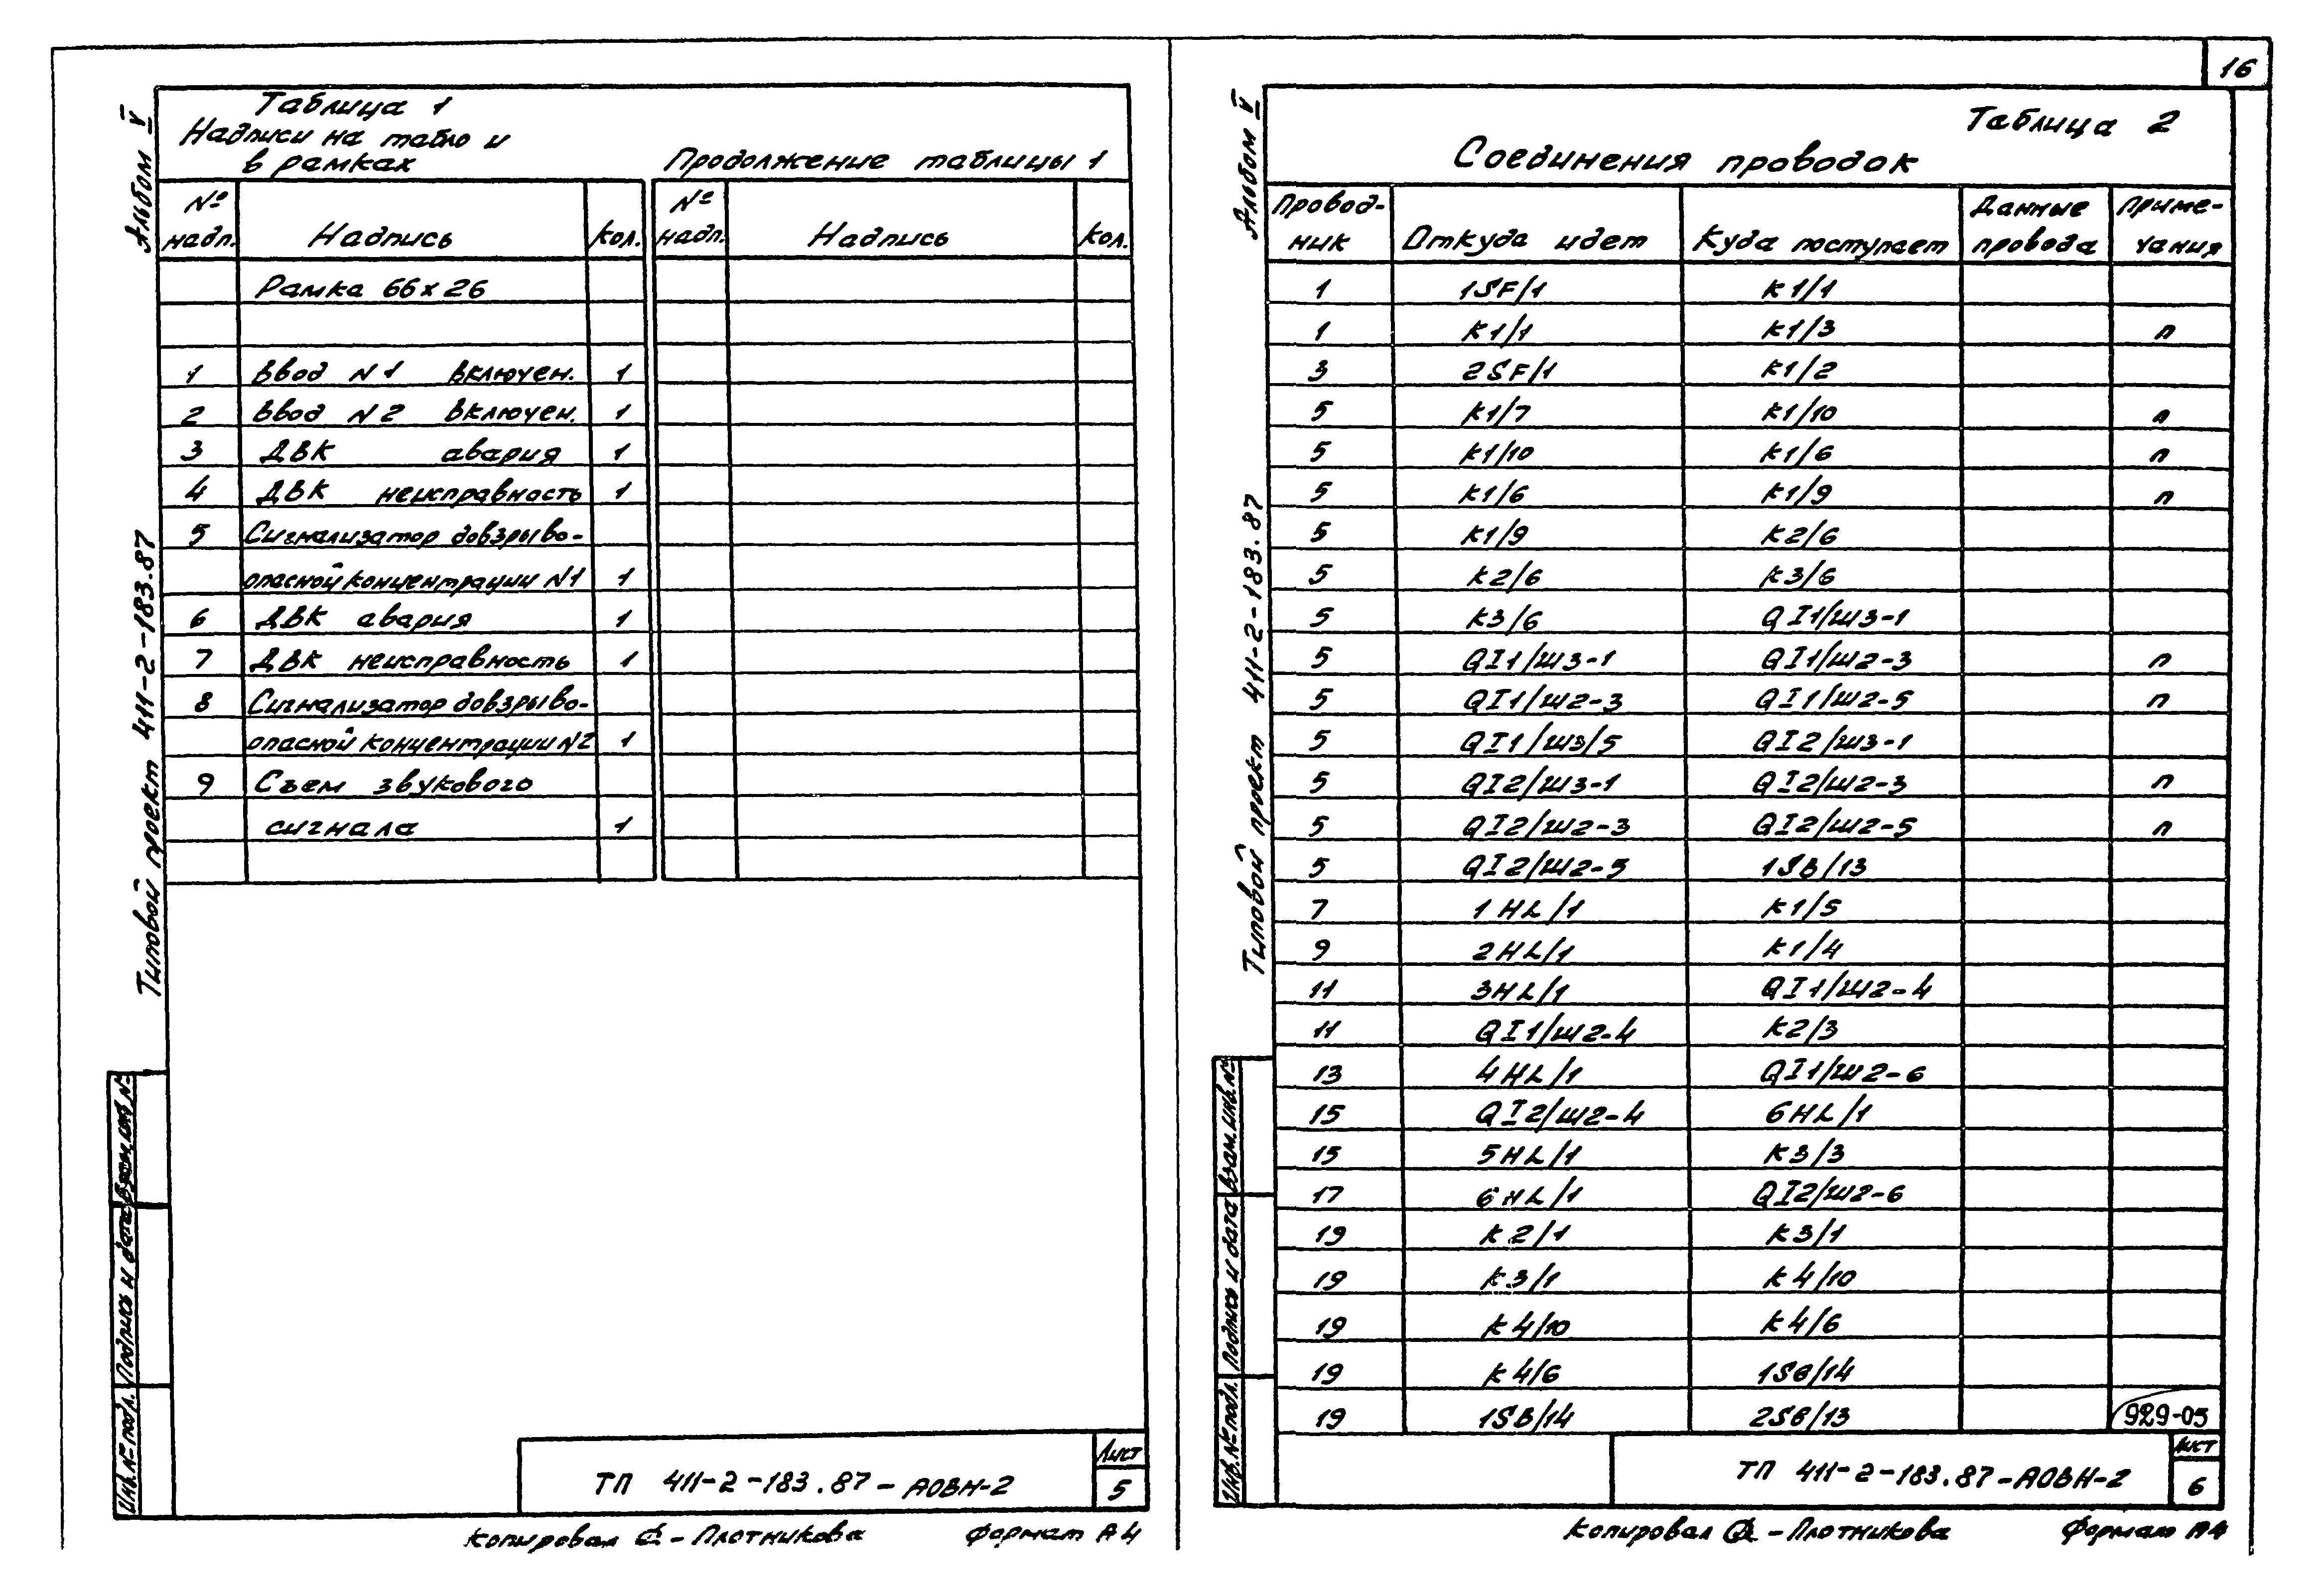 16
Альбом V
Типовой проект 411-2-183.87
Таблица 1
Надписи на табло и
в рамках
Продолжение таблицы 1
№ надп. Надпись Кол. № надп. Надпись Кол.
Рамка 66х26
1 Ввод N1 включен. 1
2 Ввод N2 включен. 1
3 ДВК авария 1
4 ДВК неисправность 1
5 Сигнализатор довзрыво-
опасной концентрации N1 1
6 ДВК авария 1
7 ДВК неисправность 1
8 Сигнализатор довзрыво-
опасной концентрации N2 1
9 Съем звукового
сигнала 1
Взам. инв. №
Подпись и дата
Инв. № подл.
ТП 411-2-183.87-АОВН-2
Лист
5
Копировал - Плотникова Формат А4
Альбом V
Типовой проект 411-2-183.87
Таблица 2
Соединения проводок
Провод-
ник Откуда идет Куда поступает Данные провода Приме-
чания
1 1SF/1 К1/1
1 К1/1 К1/3 п
3 2SF/1 К1/2
5 К1/7 К1/10 п
5 К1/10 К1/6 п
5 К1/6 К1/9 п
5 К1/9 К2/6
5 К2/6 К3/6
5 К3/6 QI1/Ш3-1
5 QI1/Ш3-1 QI1/Ш2-3 п
5 QI1/Ш2-3 QI1/Ш2-5 п
5 QI1/Ш3/5 QI2/Ш3-1
5 QI2/Ш3-1 QI2/Ш2-3 п
5 QI2/Ш2-3 QI2/Ш2-5 п
5 QI2/Ш2-5 1SB/13
7 1HL/1 К1/5
9 2HL/1 К1/4
11 3HL/1 QI1/Ш2-4
11 QI1/Ш2-4 К2/3
13 4HL/1 QI1/Ш2-6
15 QI2/Ш2-4 6HL/1
15 5HL/1 К3/3
17 6HL/1 QI2/Ш2-6
19 К2/1 К3/1
19 К3/1 К4/10
19 К4/10 К4/6
19 К4/6 1SB/14
19 1SB/14 2SB/13
929-05
Взам. инв. №
Подпись и дата
Инв. № подл.
ТП 411-2-183.87-АОВН-2
Лист
6
Копировал - Плотникова Формат А4